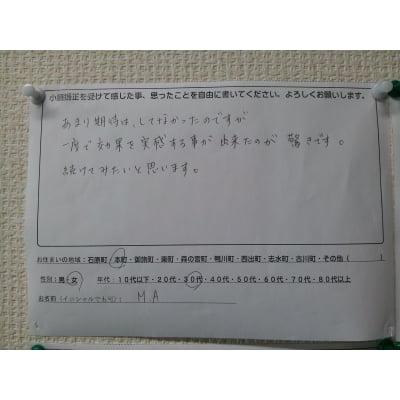 小顔矯正を受けて感じた事、思ったことを自由に書いてください。よろしくお願いします。
あまり期待は、してなかったのですが
一度で効果を実感する事が出来たのが驚きです。
続けてみたいと思います。
お住まいの地域：石原町・本町・御旅町・東町・森の宮町・鴨川町・西出町・志水町・古川町・その他（　　　）
性別：男・女　年代：１０代以下・２０代・３０代・４０代・５０代・６０代・７０代・８０代以上
お名前（イニシャルでも可）：　M.A